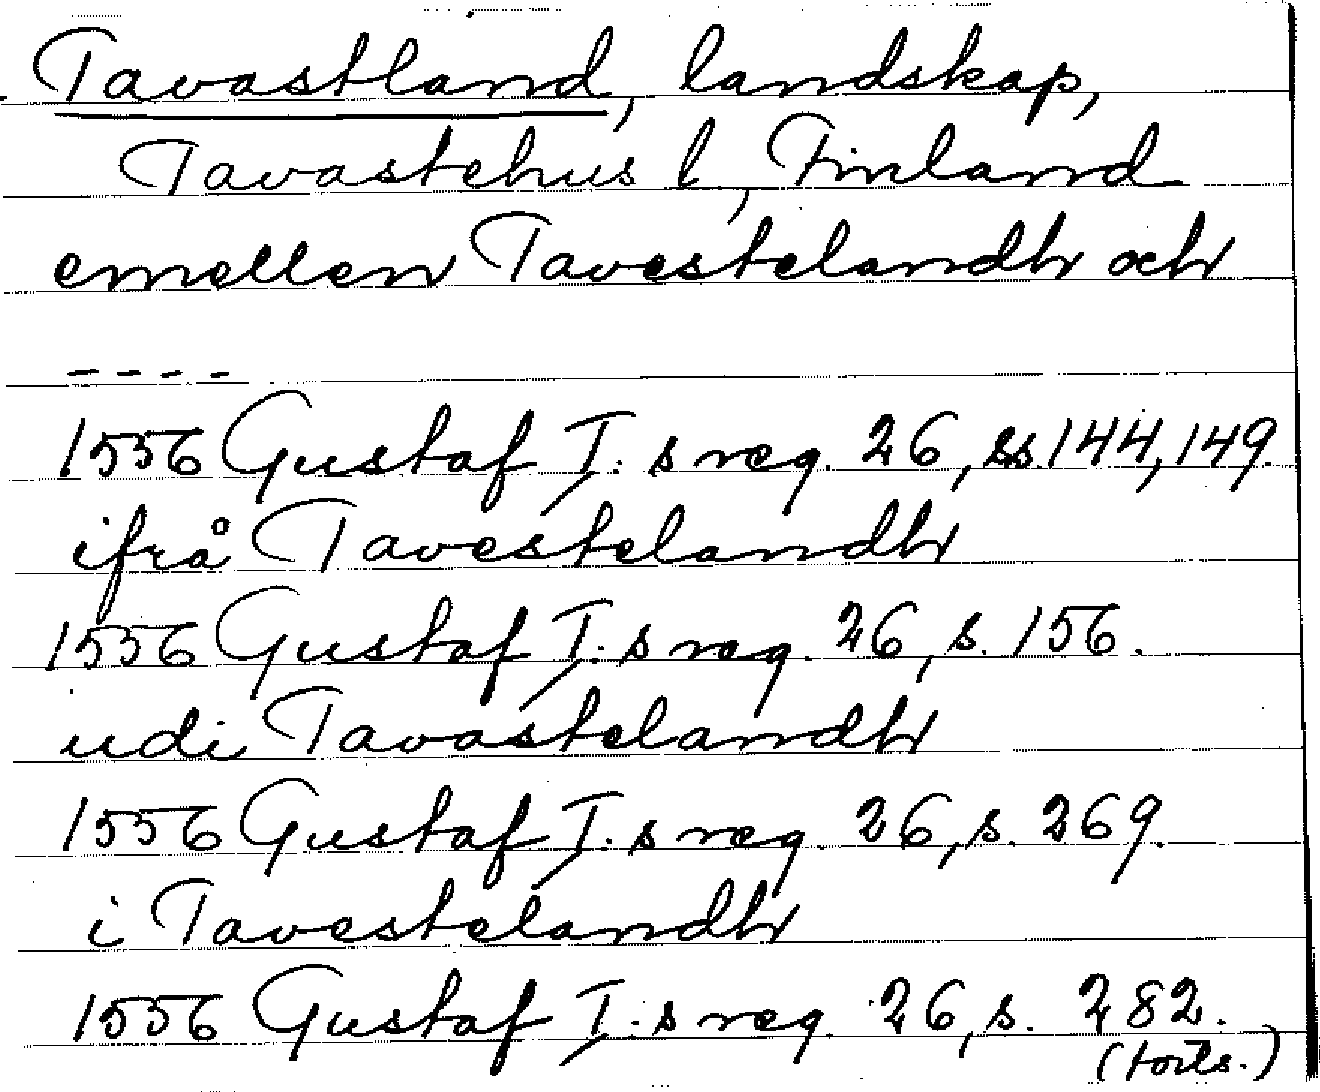 Tavastland, landskap,
Tavastehus l, Finland
emellen Tavestelandh och
- - - -
1556 Gustaf I:s reg. 26, ss. 144, 149.
ifrå Tavestelandh
1556 Gustaf I:s reg. 26, s. 156.
udi Tavastelandh
1556 Gustaf I:s reg. 26, s. 269.
i Tavestelandh
1556 Gustaf I:s reg. 26, s. 282.
(forts.)